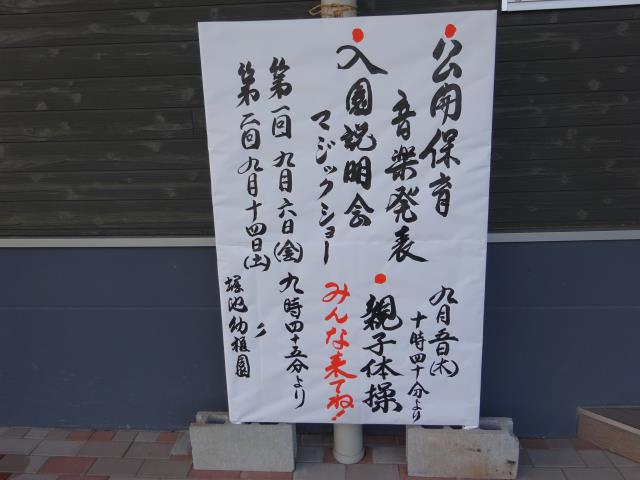 公開保育
九月五日(木)
十時四十分より
音楽発表
親子体操
入園説明会
マジックショー
みんな来てね!
第一回 九月六日(金) 九時四十五分より
第二回 九月十四日(土) 〃
塚池幼稚園